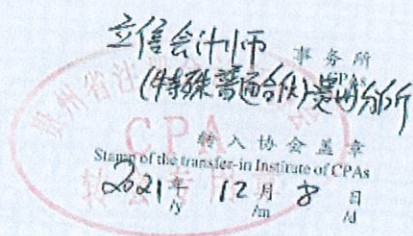 立信会计师 事务所
CPAs
(特殊普通合伙)贵州分所
贵州省注
CPA
转入协会盖章
Stamp of the transfer-in Institute of CPAs
2021年 12月 8日
/y /m /d